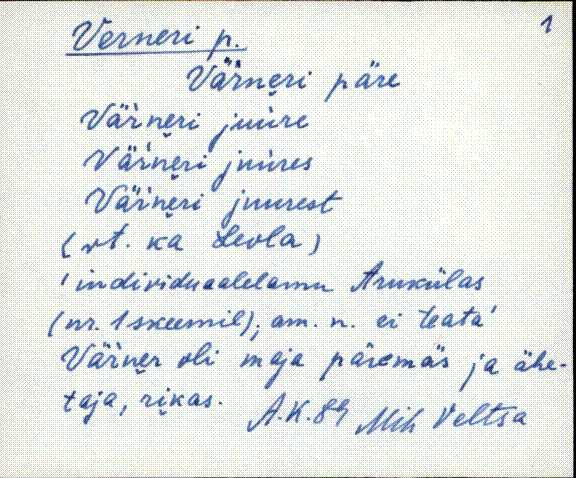 1
Verneri p.
Värneri päre
Vär̀neri juùre
Vär̀neri juùres
Vär̀neri juurest
(vt. ka Leola)
'individuaalelamu Arukülas
(nr. 1 skeemil), am. n. ei teata'
Vär̀ner oli maja päremäs ja ähe-
taja, rikas.
A.K. 89 Mih Veltsa